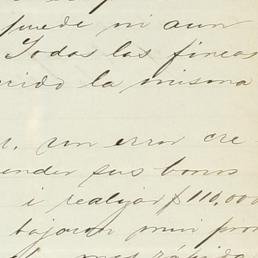 puede ni aun
Todas las fincas
rido la misma
un error cre
ender sus bonos
i realizar $110,000
bajaron muy pron
mas rápida